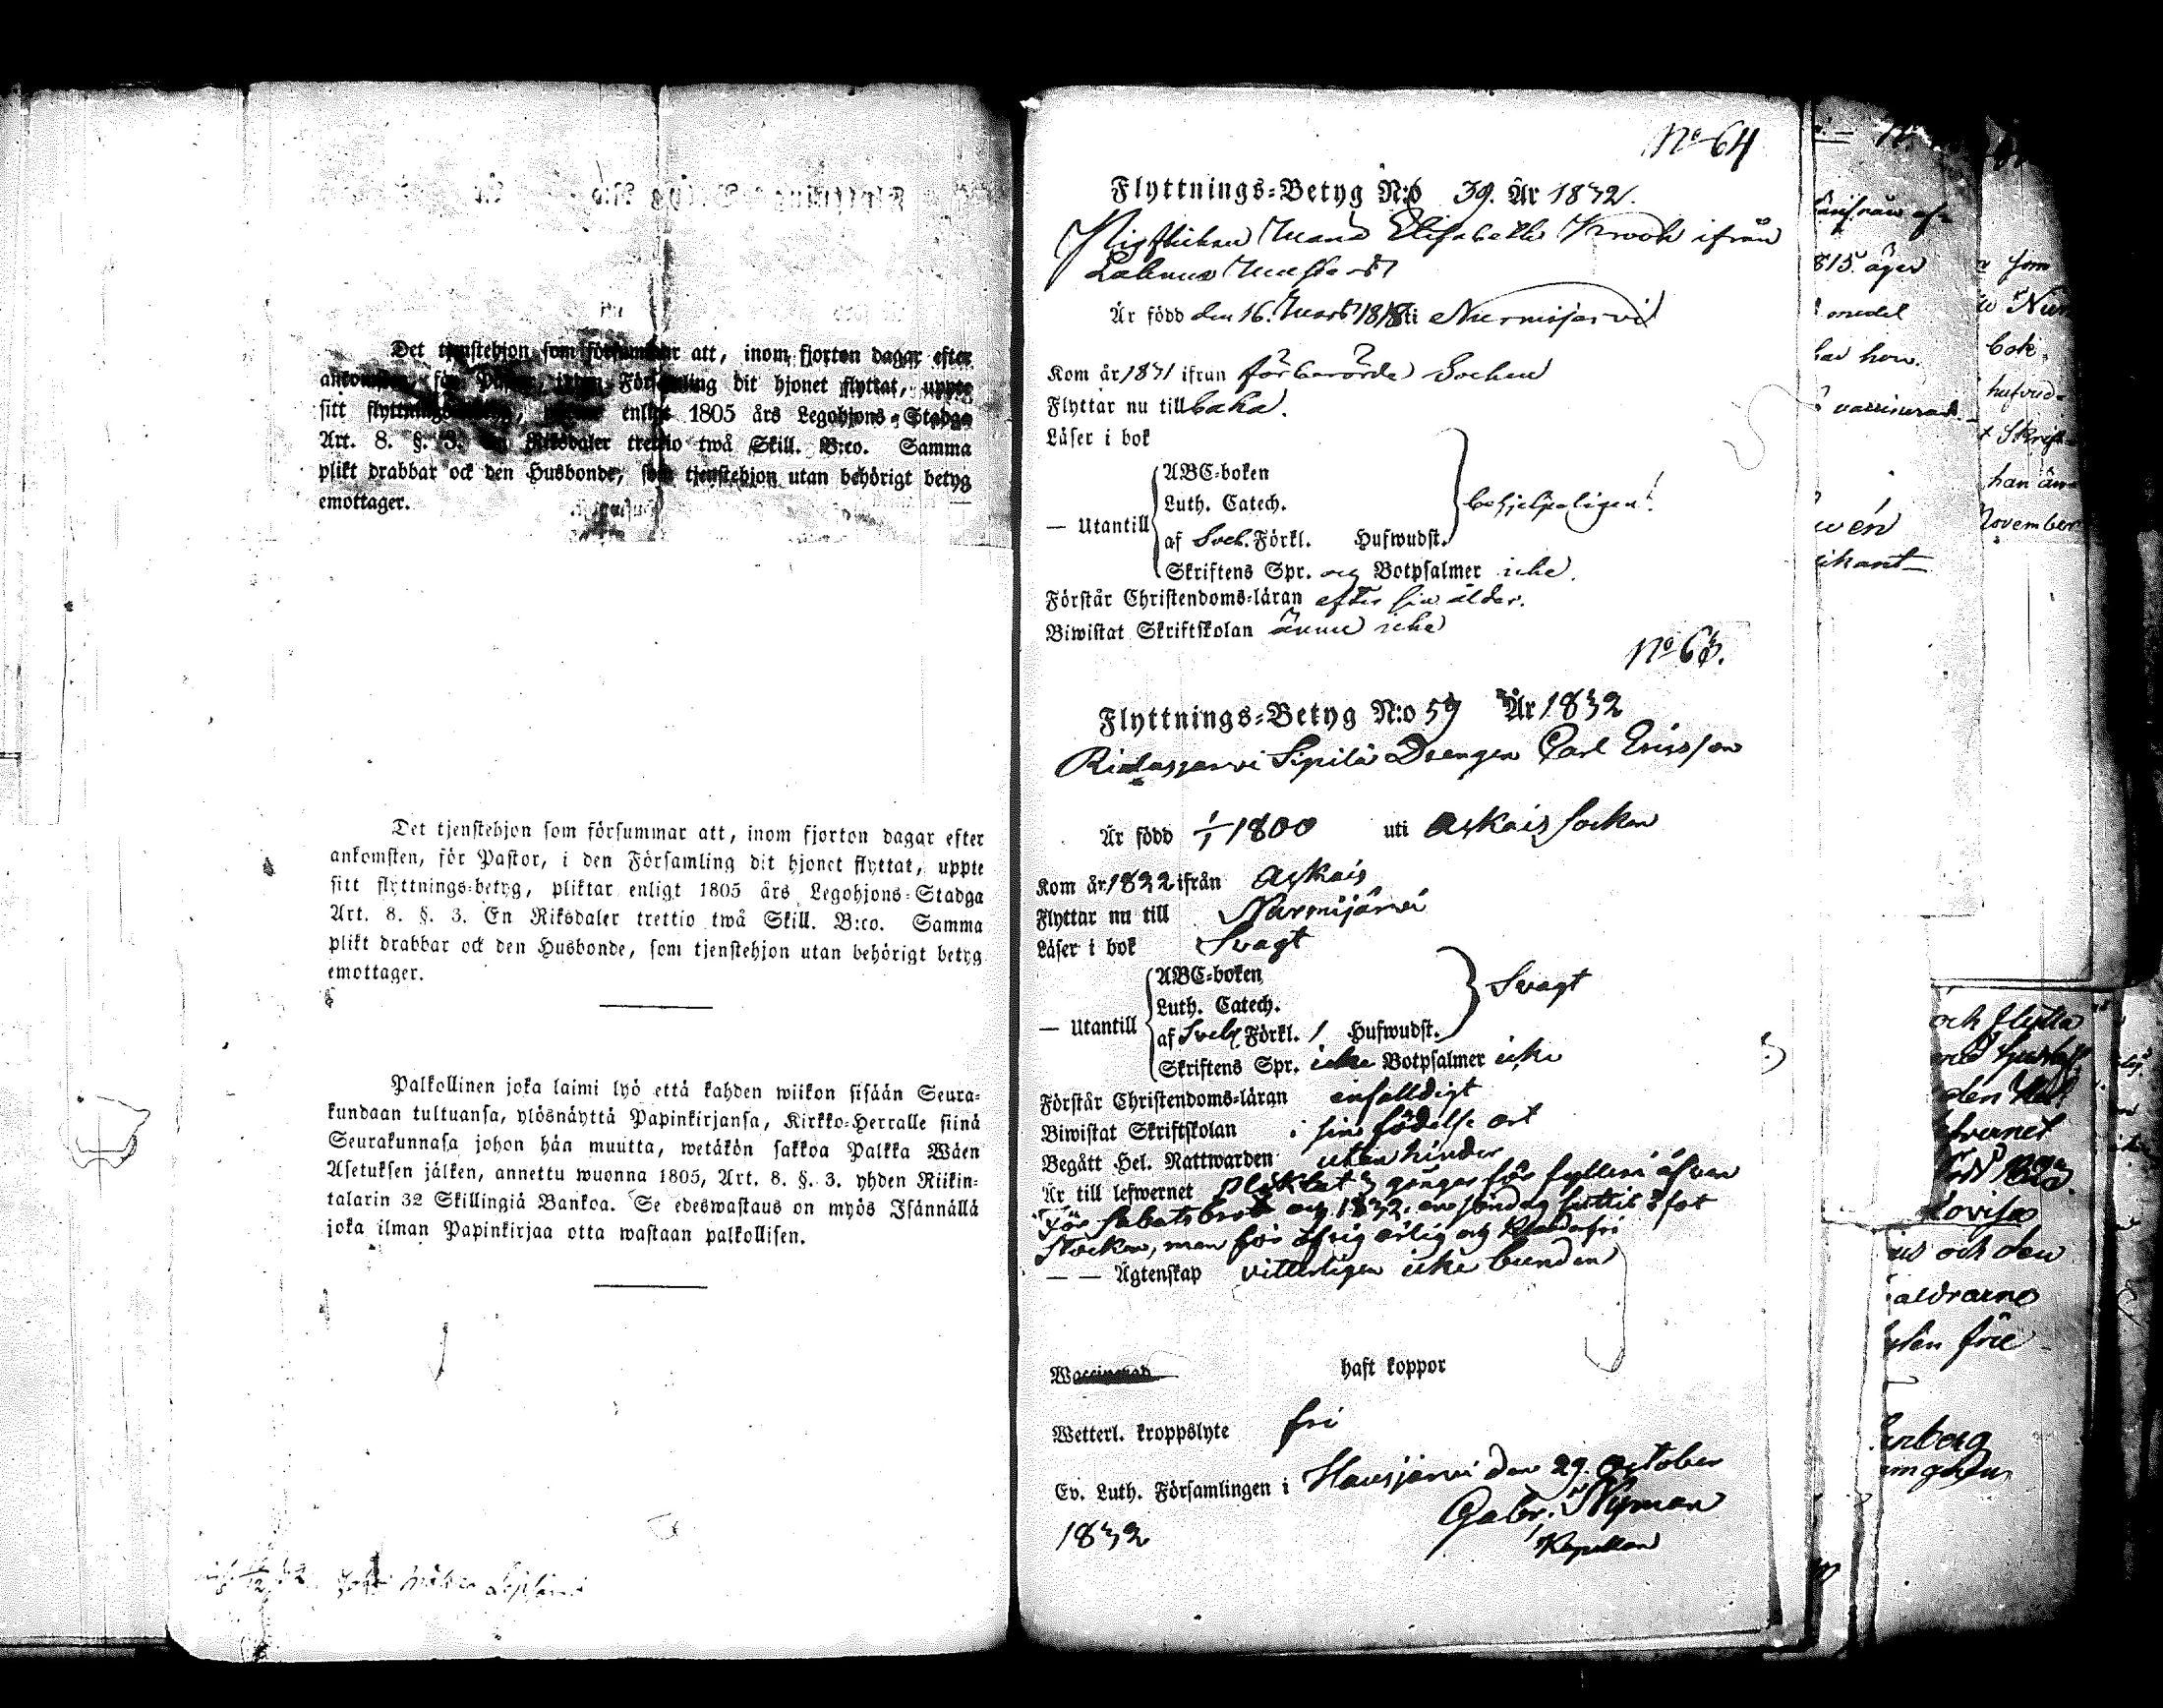 Det tjenstehjon som försummar att, inom fjorton dagar efter
ankomsten, för Pastor, i den Församling dit hjonet flyttat, uppte
sitt flyttnings-betyg, enligt 1805 års Legohjons-Stadga
Art. 8. §. 3. En Riksdaler trettio twå Skill. B:co. Samma
plikt drabbar ock den Husbonde, som tjenstehjon utan behörigt betyg
emottager.
Det tjenstehjon som försummar att, inom fjorton dagar efter
ankomsten, för Pastor, i den Församling dit hjonet flyttat, uppte
sitt flyttnings-betyg, pliktar enligt 1805 års Legohjons-Stadga
Art. 8. §. 3. En Riksdaler trettio twå Skill. B:co. Samma
plikt drabbar ock den Husbonde, som tjenstehjon utan behörigt betyg
emottager.
Palkollinen joka laimi lyö että kahden wiikon sisään Seura-
kundaan tultuansa, ylösnäyttä Papinkirjansa, Kirkko-Herralle siinä
Seurakunnasa johon hän muutta, wetäkön sakkoa Palkka Wäen
Asetuksen jälken, annettu wuonna 1805, Art. 8. §. 3. yhden Riikin-
talarin 32 Skillingiä Bankoa. Se edeswastaus on myös Isännällä
joka ilman Papinkirjaa otta wastaan palkollisen.
No 64
Flyttnings-Betyg N:o 39. År 1832.
Pigflickan Maria Elisabeth Krook ifrån
Är född den 16. Mars 1818 uti Nurmijärvi
Kom år 1831 ifrån förberörde Socken
Flyttar nu till baka.
Läser i bok
ABC-boken
Luth. Catech.
— Utantill behjelpeligen.
af Sveb. Förkl. Hufwudst.
Skriftens Spr. och Botpsalmer icke.
Förstår Christendoms-läran efter sin ålder.
Biwistat Skriftskolan ännu icke
No 65.
Flyttnings-Betyg N:o 59 År 1832
Ridasjärvi Sipilä Drengen Carl Ericsson
Är född 1/1 1800 uti Askais socken
Kom år 1822 ifrån Askais
Flyttar nu till Nurmijärvi
Läser i bok Svagt
ABC-boken
Luth. Catech.
— Utantill Svagt
af Sveb. Förkl. Hufwudst.
Skriftens Spr. icke Botpsalmer icke
Förstår Christendoms-läran enfalldigt
Biwistat Skriftskolan i sin födelse ort
Begått Hel. Nattwarden utan hinder
Är till lefwernet pliktat 3 gånger för fylleri äfven
för sabatsbrott och 1832 en söndag suttit i fot
stocken, men för öfrig ärlig och
— — Ägtenskap vitterligen icke bunden
Waccinerad haft koppor
Wetterl. kroppslyte fri
Ev. Luth. Församlingen i Hausjärvi den 29. October
1832 Gabr. Nyman
Kapellan
815. äger
medel
har hon.
vaccinerad.
som
bok
hufvud-
Skrift-
han än
November
och flytta
Lovisa
och den